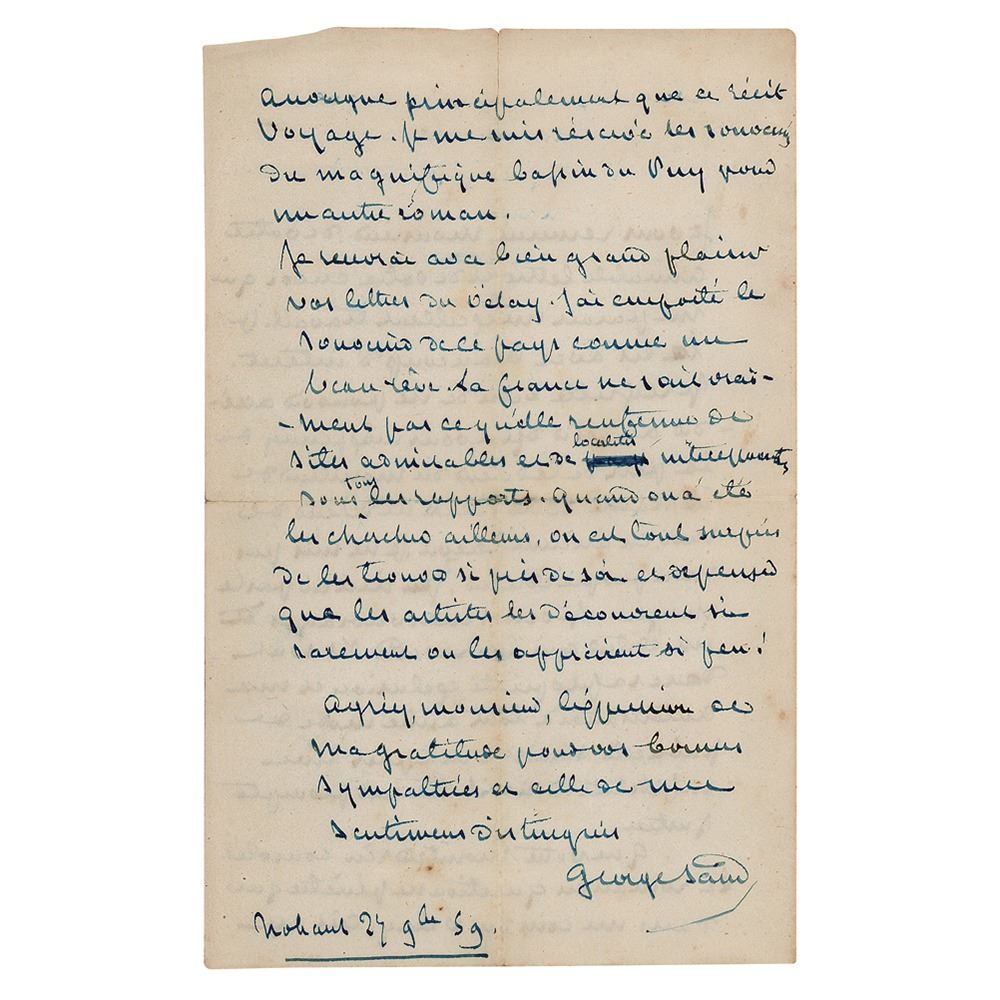 auvergne principalement que ce récit
voyage. Je me suis réservée les souvenirs
du magnifique bassin du Puy pour
un autre roman.
Je recevrai avec bien grand plaisir
vos lettres du Vélay. J'ai emporté le
souvenir de ce pays comme un
beau rêve. La france ne sait vrai-
-ment pas ce qu'elle renferme de
localités
sites admirables et de intéressants
tous
sous les rapports. Quand on a été
les chercher ailleurs, on est tout surpris
de les trouver si près de soi et de penser
que les artistes les découvrent si
rarement ou les apprécient si peu!
Agréez, monsieur, l'expression de
ma gratitude pour vos bonnes
sympathies et celle de mes
sentimens distingués
George Sand
Nohant 27 9bre 59.